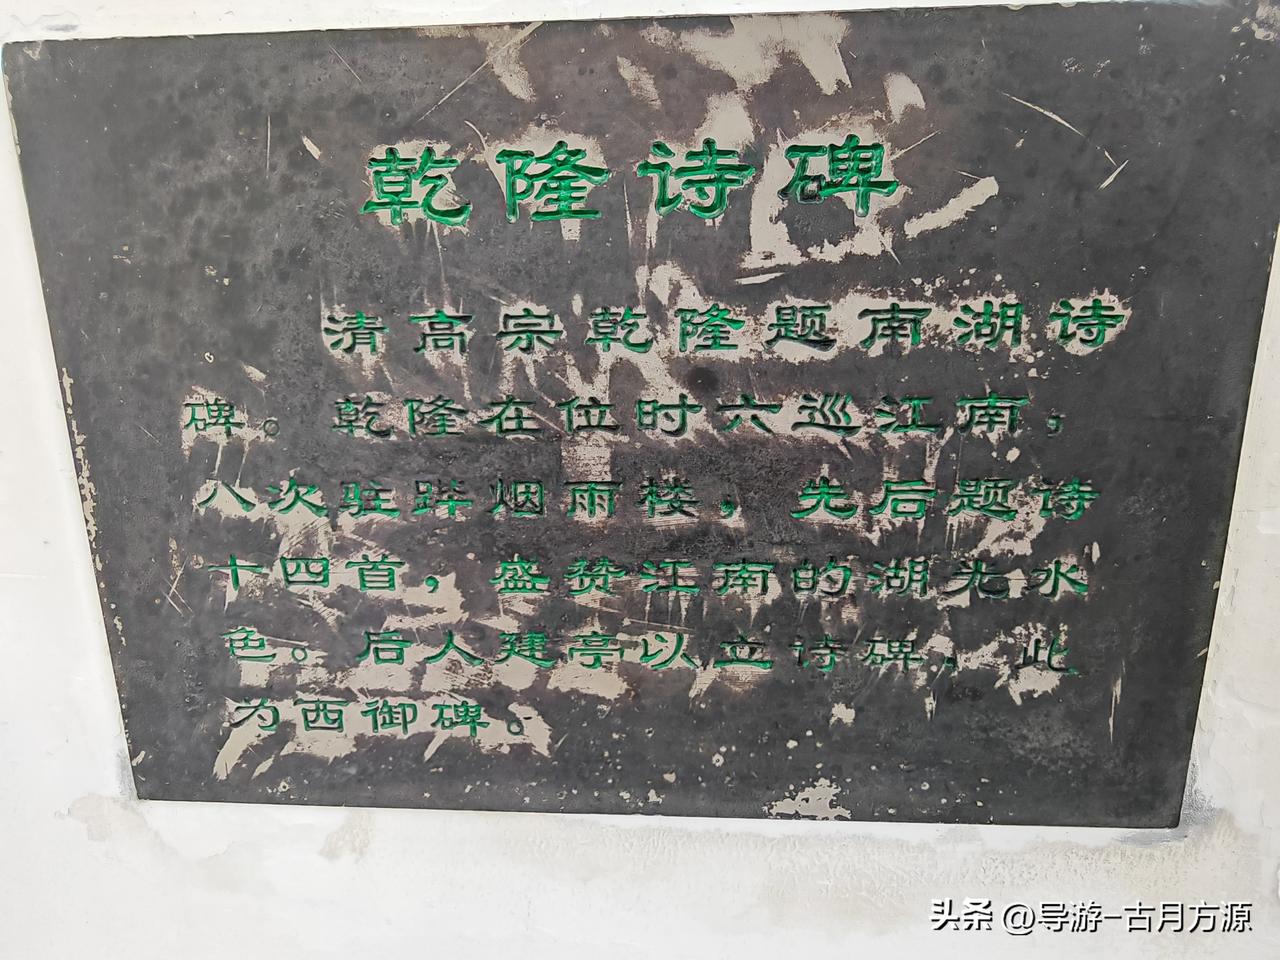 乾隆诗碑
清高宗乾隆题南湖诗
碑。乾隆在位时六巡江南，
八次驻跸烟雨楼，先后题诗
十四首，盛赞江南的湖光水
色。后人建亭以立诗碑，此
为西御碑。
头条 @导游-古月方源